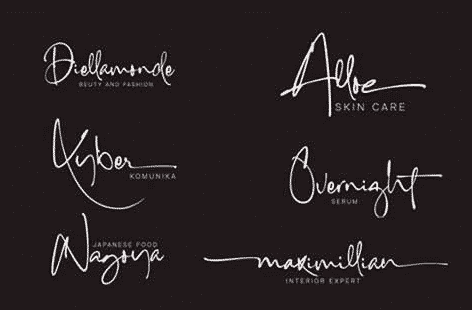 Diellamonde
BEUTY AND FASHION
Alloe
SKIN CARE
Kyber
KOMUNIKA
Overnight
SERUM
JAPANESE FOOD
Nagoya
maximillian
INTERIOR EXPERT